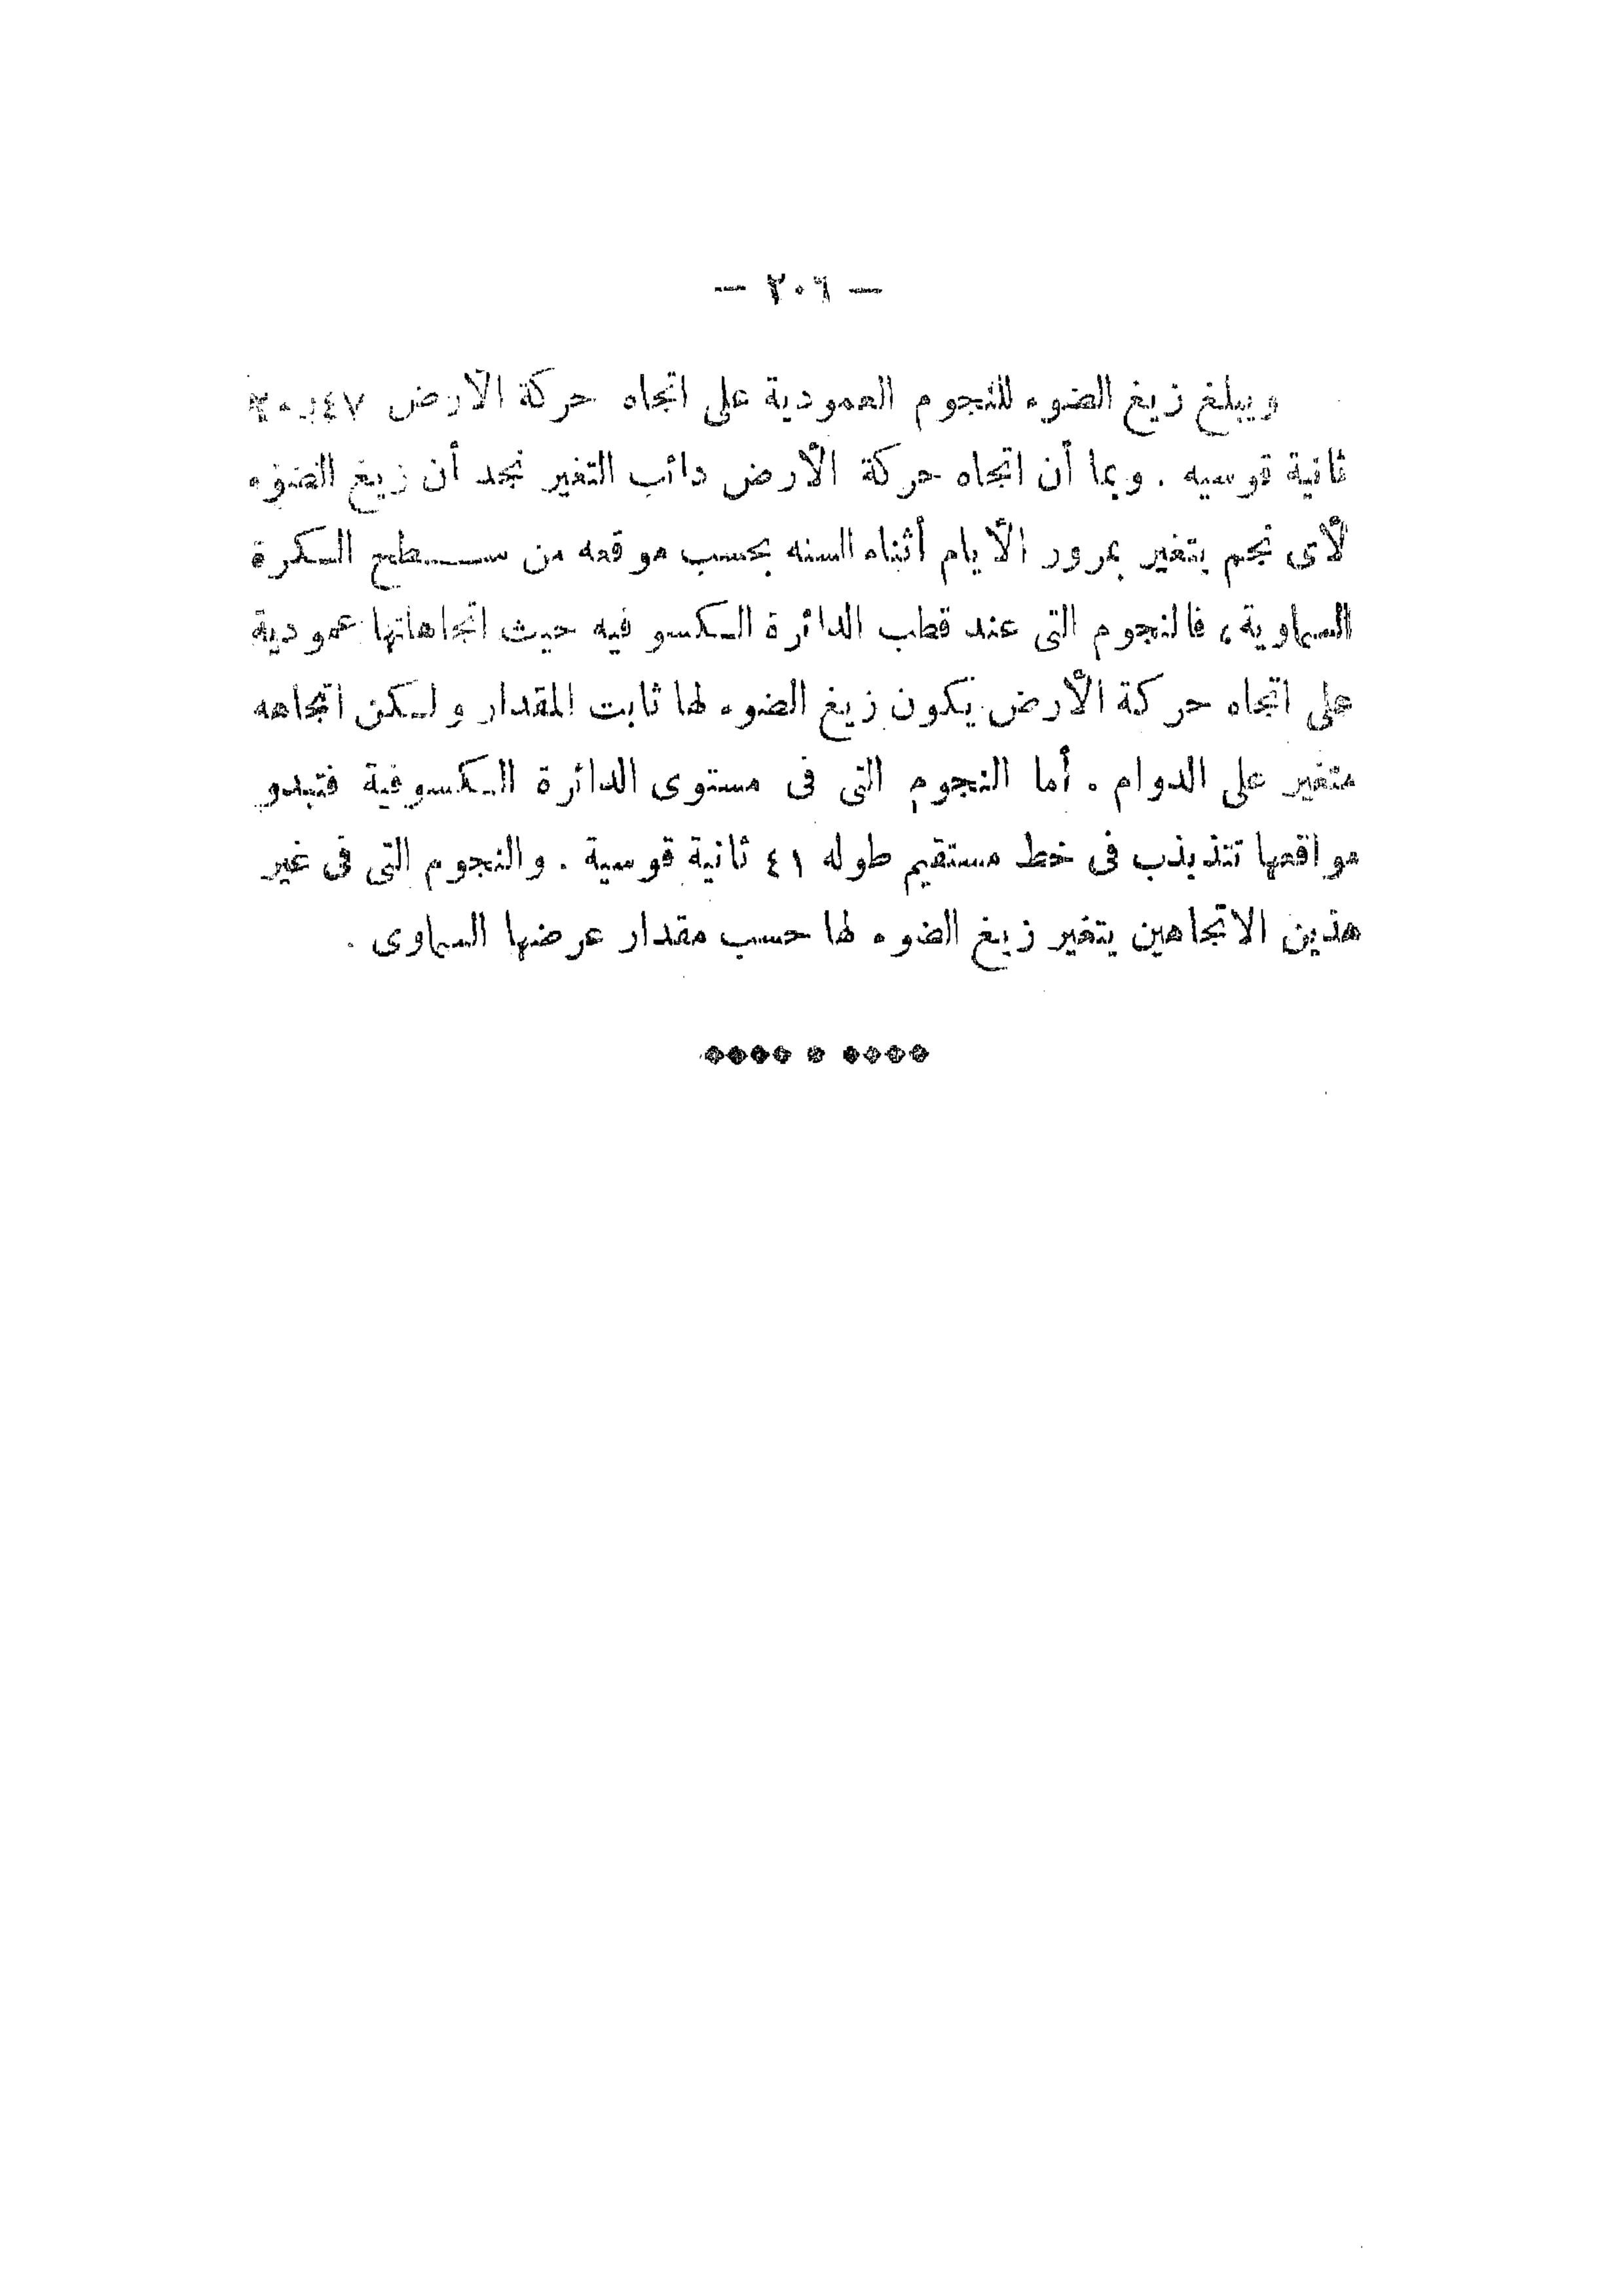 — ٢٠٦ —
ويبلغ زيغ الضوء للنجوم العمودية على اتجاه حركة الأرض ٤٧ر٢٠
ثانية قوسيه . وبما أن اتجاه حركة الأرض دائب التغير نجد أن زيغ الضوء
لأى نجم يتغير بمرور الأيام أثناء السنه بحسب موقعه من ســـطح الكرة
السماوية ، فالنجوم التى عند قطب الدائرة الكسوفيه حيث اتجاهاتها عمودية
على اتجاه حركة الأرض يكون زيغ الضوء لها ثابت المقدار ولكن اتجاهه
متغير على الدوام . أما النجوم التى فى مستوى الدائرة الكسوفية فتبدو
مواقعها تتذبذب فى خط مستقيم طوله ٤١ ثانية قوسية . والنجوم التى فى غير
هذين الاتجاهين يتغير زيغ الضوء لها حسب مقدار عرضها السماوى .